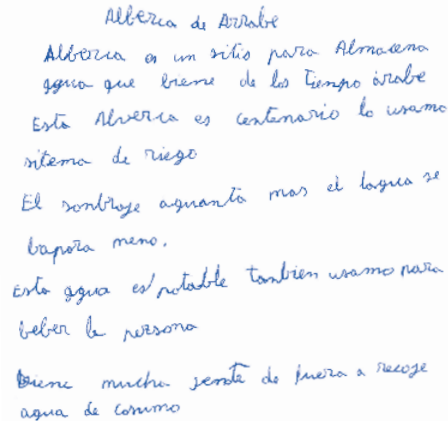 Alberca de Arrabe
Alberca es un sitis para Almacena
agua que biene de los tiempo árabe
Esta Alverca es centenario lo usamo
sitema de riego
El sonbraje aguanta mas el lagua se
bapora meno.
Esta agua es potable tanbien usamo para
beber la persona
Biene mucha jente de fuera a recoje
agua de cosumo